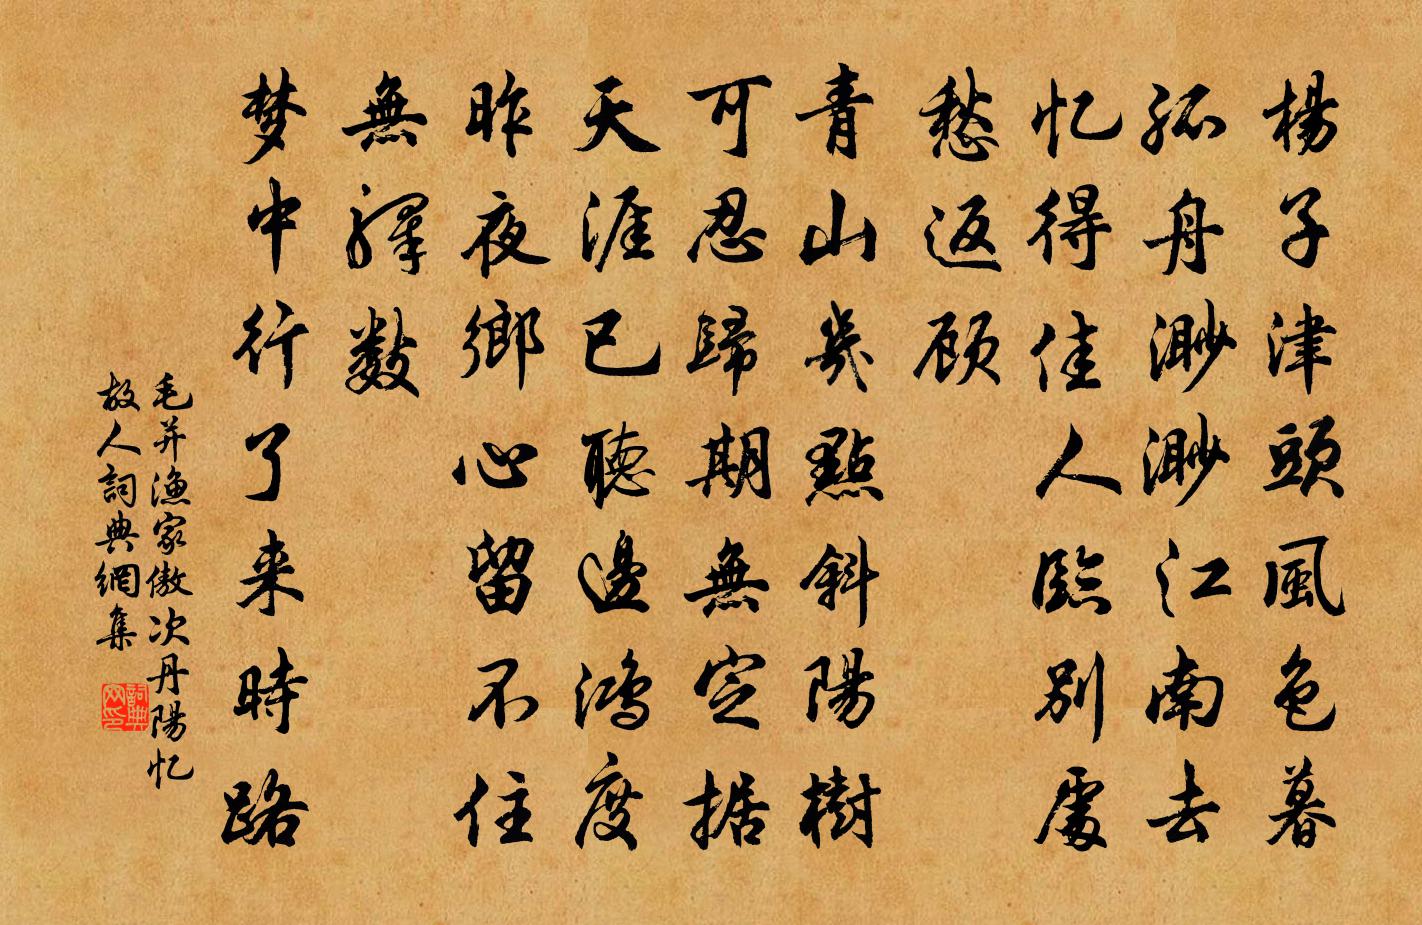 楊子津頭風色暮
孤舟渺渺江南去
忆得佳人臨別處
愁返顾
青山幾點斜陽樹
可忍歸期無定据
天涯已聽邊鴻度
昨夜鄉心留不住
無驛數
梦中行了来時路
毛幵渔家傲次丹陽忆
故人詞典網集
詞典网印